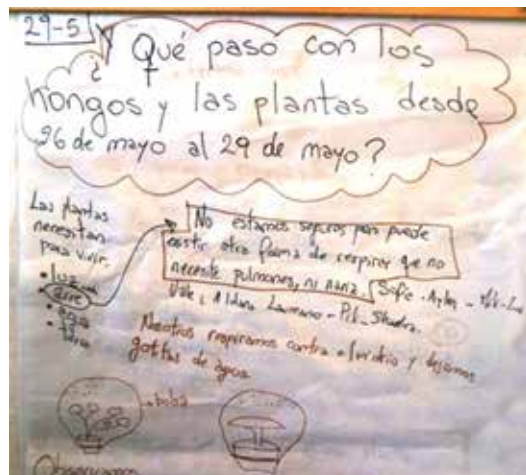 29-5
¿Qué paso con los
hongos y las plantas desde
26 de mayo al 29 de mayo?
Las plantas
necesitan
para vivir.
• luz
• aire
• agua
• tierra
No estamos seguros pero puede
existir otra forma de respirar que no
necesite pulmones, ni nariz. Sofía
Aldana Laureano
Nosotros respiramos contra el vidrio y dejamos
gotitas de agua
Observamos